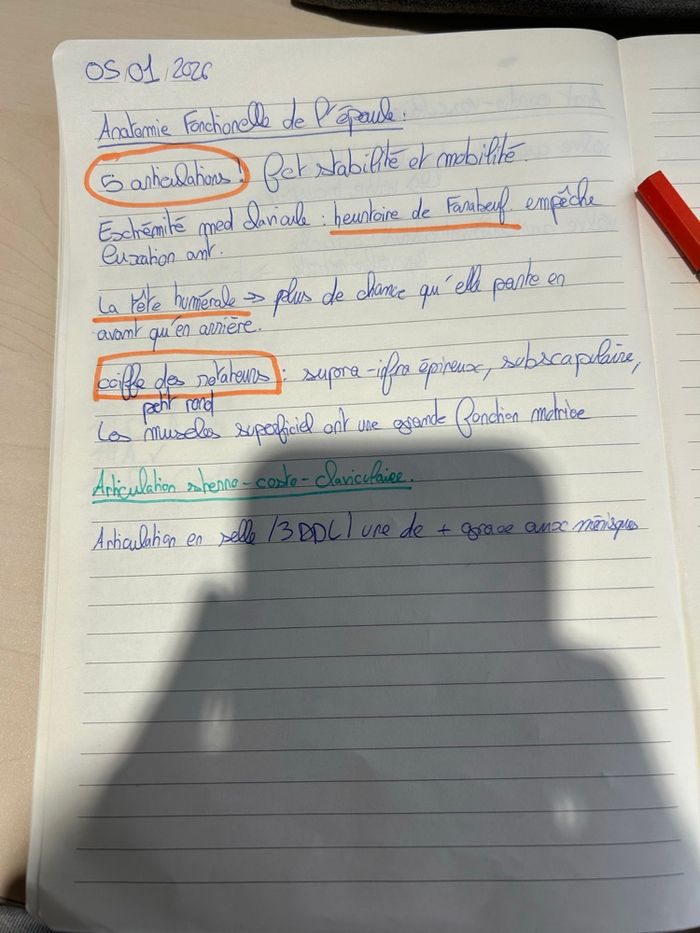 05/01/2026
Anatomie Fonctionelle de l'épaule.
5 articulations! fct stabilité et mobilité.
Extrémité med clavicule : heurtoire de Farabeuf empêche
luxation ant.
La tête humérale → plus de chance qu'elle parte en
avant qu'en arrière.
coiffe des rotateurs : supra-infra épineux, subscapulaire,
petit rond
Les muscles superficiel ont une grande fonction motrice
Articulation sterno-costo-claviculaire.
Articulation en selle (3DDL) une de + grace aux ménisques